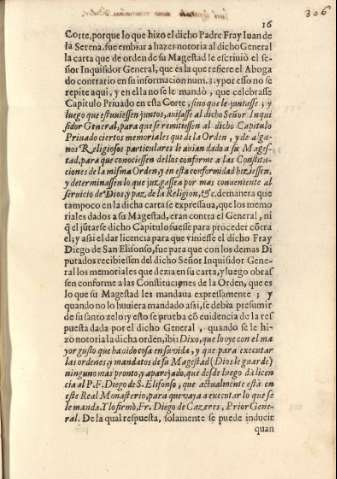 16
306
Corte, porque lo que hizo el dicho Padre Fray Iuan de
la Serena, fue embiar a hazer notoria al dicho General
la carta que de orden de su Magestad le escriuiò el se-
ñor Inquisidor General, que es la que refiere el Aboga
do contrario en su informacion num. 1; y por esso no se
repite aqui, y en ella no se le mandò, que celebrasse
Capitulo Priuado en esta Corte, sino que le juntasse; y
luego que estuuiessen juntos, auisasse al dicho Señor Inqui
sidor General, para que se remitiessen al dicho Capitulo
Priuado ciertos memoriales que de la Orden, y de algu-
nos Religiosos particulares le auian dado a su Mages-
tad, para que conociessen dellos conforme a las Constitu-
ciones de la misma Orden, y en esta conformidad hiziessen,
y determinassen lo que juzgassen por mas conueniente al
seruicio de Dios, y paz, de la Religion, &c. demanera que
tampoco en la dicha carta se expressaua, que los memo
riales dados a su Magestad, eran contra el General, ni
q̃ el jũtarse dicho Capitulo fuesse para proceder cõtra
el; y assi el dar licencia para que viniesse el dicho Fray
Diego de San Elifonso, fue para que con los demas Di
putados recibiessen del dicho Señor Inquisidor Gene-
ral los memoriales que dezia en su carta, y luego obras
sen conforme a las Constituciones de la Orden, que es
lo que su Magestad les mandaua expressamente; y
quando no lo huuiera mandado assi, se debia presumir
de su santo zelo y esto se prueba cõ euidencia de la res
puesta dada por el dicho General, quando se le hi-
zo notoria la dicha orden, ibi: Dixo, que lo oye con el ma
yor gusto que ha oido cosa en su vida, y que para executar
las ordenes y mandatos de su Magestad (Dios le guarde)
ninguno mas pronto, y aparejado, que desde luego dà licen
cia al P.F. Diego de S. Elifonso, que actualmente està en
este Real Monasterio, para que vaya a executar lo que se
le manda. Y lo firmò, Fr. Diego de Cazeres, Prior Gene-
ral. De la qual respuesta, solamente se puede inducir
quan